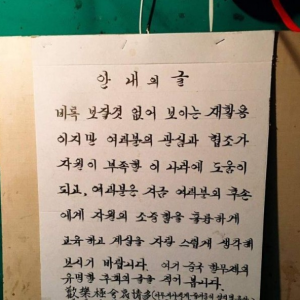 안 내 의 글
비록 보잘것 없어 보이는 재활용
이지만 여러분의 관심과 협조가
자원이 부족한 이 나라에 도움이
되고, 여러분은 지금 여러분의 후손
에게 자원의 소중함을 훌륭하게
교육하고 계심을 자랑 스럽게 생각해
보시기 바랍니다. 여기 중국 한무제의
유명한 후회의 글을 적어 봅니다.
歡樂極兮哀情多